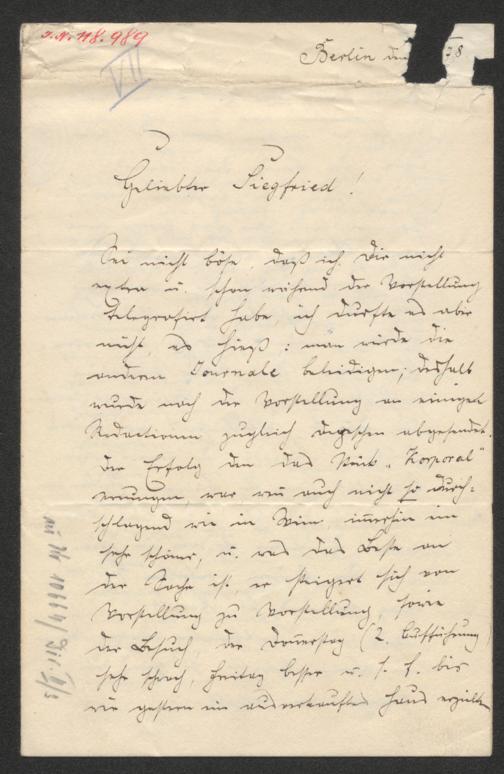 I.N. 118.989
VII
Berlin den 28
Geliebter Siegfried!
Sei nicht böse, daß ich Dir nicht
extra u. schon während der Vorstellung
telegrafirt habe, ich durfte es aber
nicht, es hieß: man würde die
anderen Journale beleidigen; deshalb
wurde nach der Vorstellung an einigen
Redactionen zugleich Depeschen abgesendet.
Der Erfolg den das Stück „Korporal"
errungen, war nun auch nicht so durch-
schlagend wie in Wien, immerhin ein
sehr schöner, u. was das Beste an
der Sache ist, er steigert sich von
Vorstellung zu Vorstellung, sowie
der Besuch, der Donnerstag (2. Aufführung)
sehr schwach, Freitag besser u. s. f. bis
wir gestern ein ausverkauftes Haus erzielten